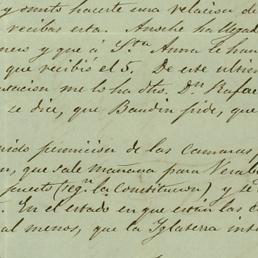 y omito hacerte una relacion de
recibas esta. Anoche ha llegado
mens y que á S.ta Anna le han
que recibió el 5. De este ultim
me lo ha dho. D.n Rafae
se dice, que Baudin pide, que
permision de las Camaras
n, que sale mañana para Verac
puerto (seg.n la Constitucion) y se
. En el estado en que están las c
al menos, que la Yglaterra int